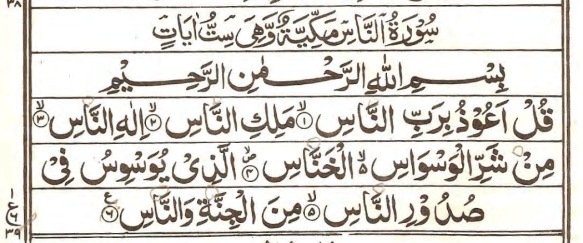 سُوْرَةُ النَّاسِ مَكِّيَّةٌ وَّهِىَ سِتُّ اٰيَاتٍ
بِسْمِ اللّٰهِ الرَّحْمٰنِ الرَّحِيْمِ
قُلْ اَعُوْذُ بِرَبِّ النَّاسِ ۙ﴿۱﴾ مَلِكِ النَّاسِ ۙ﴿۲﴾ اِلٰهِ النَّاسِ ۙ﴿۳﴾
مِنْ شَرِّ الْوَسْوَاسِ ۙ۬ الْخَنَّاسِ ۪ۙ﴿۴﴾ الَّذِىْ يُوَسْوِسُ فِىْ
صُدُوْرِ النَّاسِ ۙ﴿۵﴾ مِنَ الْجِنَّةِ وَالنَّاسِ ﴿۶﴾ع
۳۸
۱
ع
۶
۳۹